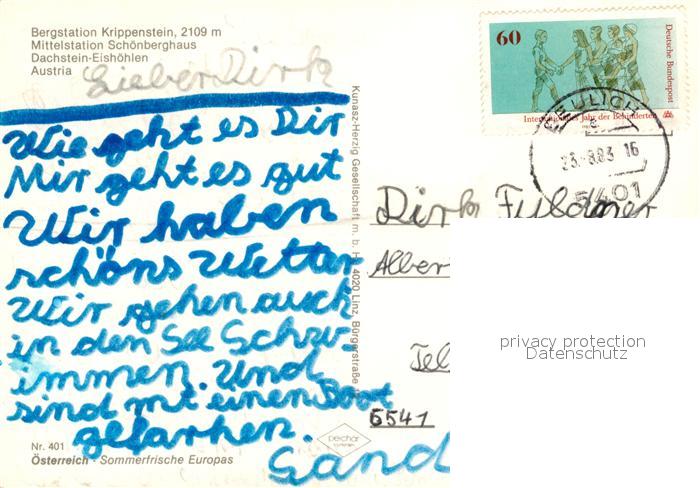 Bergstation Krippenstein, 2109 m
Mittelstation Schönberghaus
Dachstein-Eishöhlen
Austria
Lieber Dirk
Wie geht es Dir
Mir geht es gut
Wir haben
schöns Wetter
Wir gehen auch
in den See Schw-
immen. Und
sind mit einen Boot
gefarhen.
Sand
Nr. 401
Österreich · Sommerfrische Europas
Kunasz-Herzig Gesellschaft m. b. H., 4020 Linz, Bürgerstraße
pechar
60
Deutsche Bundespost
Internationales Jahr der Behinderten
BEULICH
23.-8.83 16
5401
Dirk Fuldner
Alber
Tel
6541
privacy protection
Datenschutz